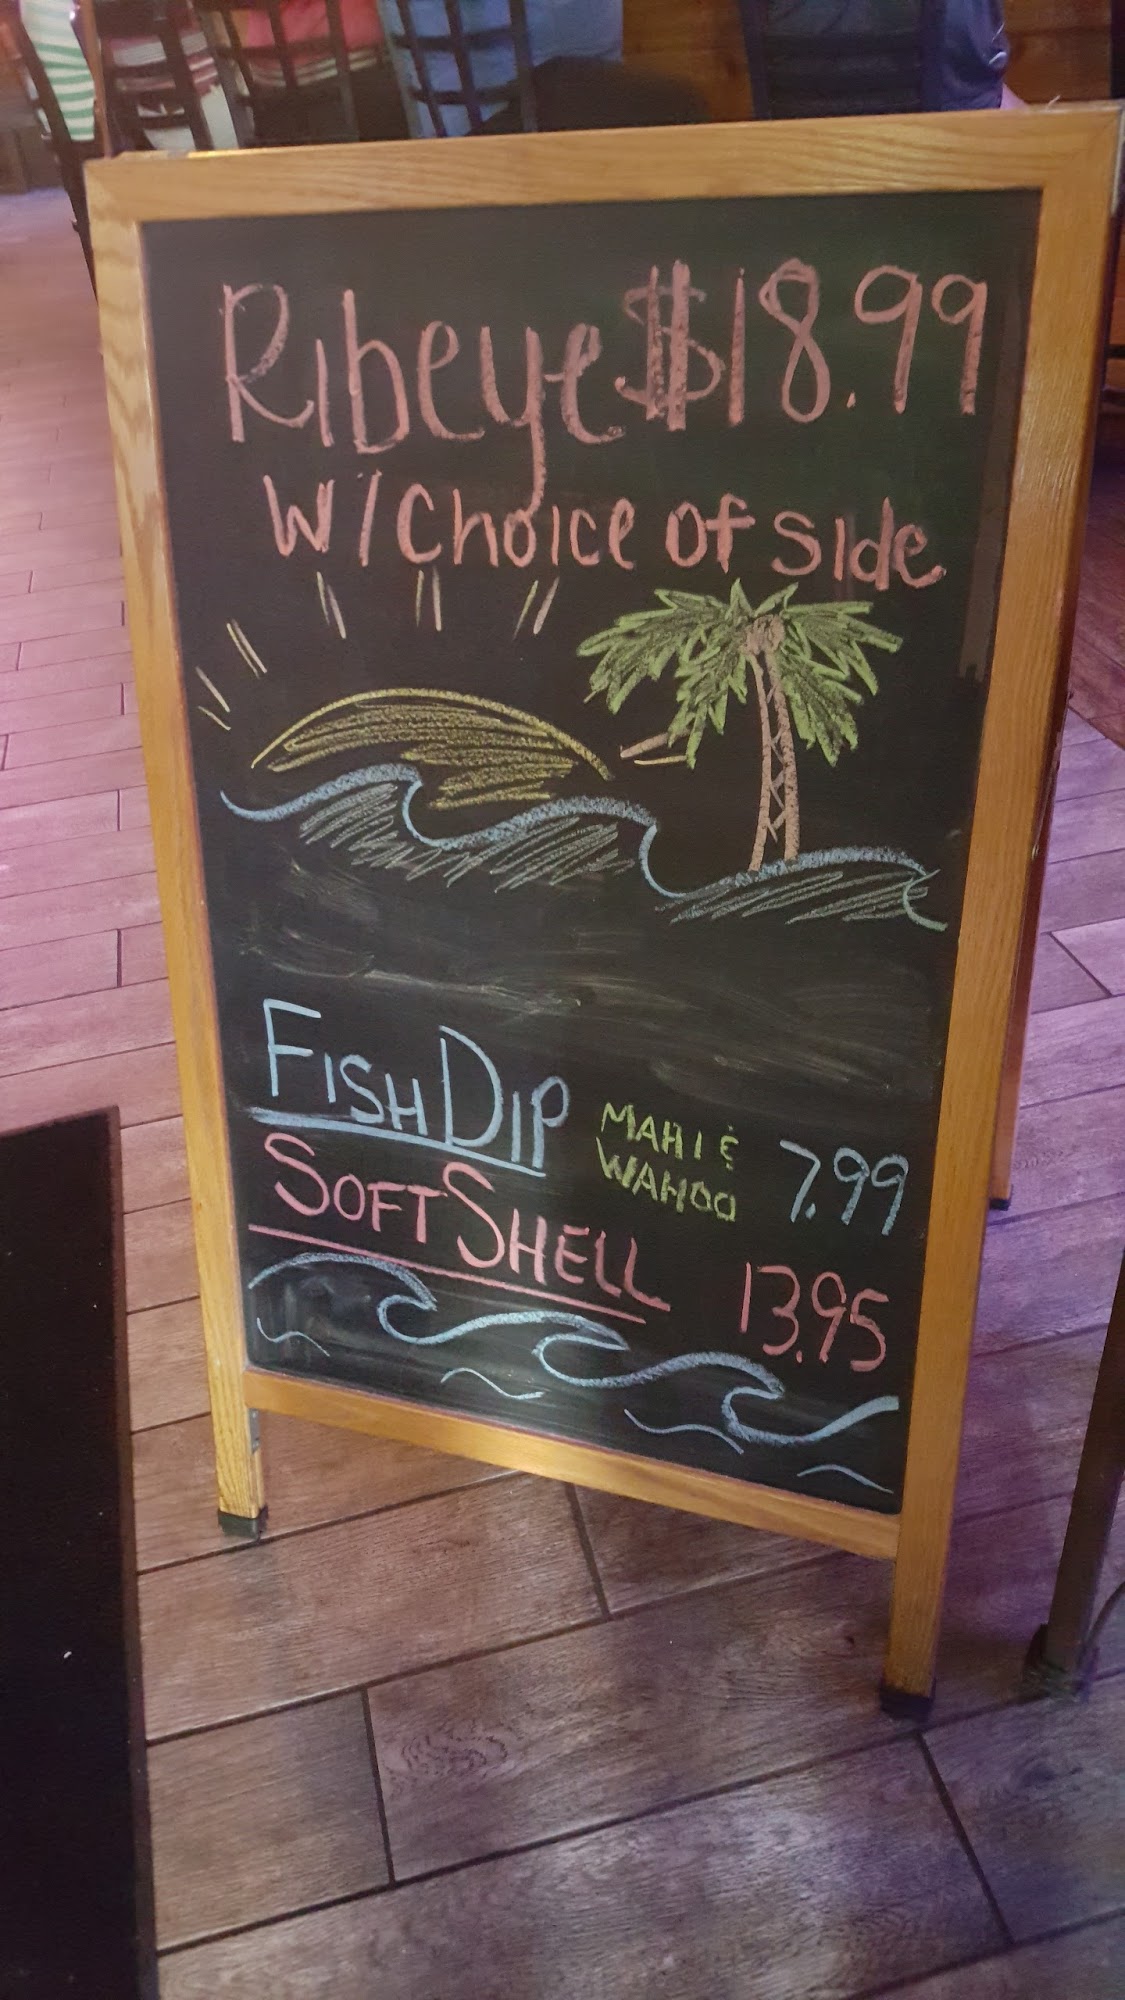 Ribeye $18.99
W/Choice of side
FISH DIP MAHI & WAHOO 7.99
SOFT SHELL 13.95